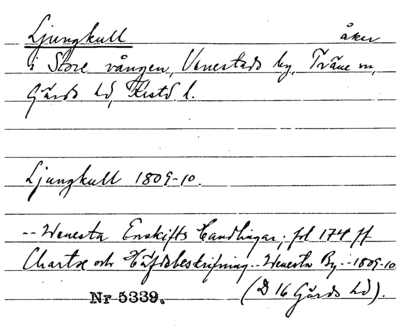 Ljungkull åker
i Store vången, Venestads by, Träne sn,
Gärds hd, Kristd. l.
Ljungkull 1809-10.
-- Wenesta Enskifts Handlingar, fol 174 ff
Charta och Häfdebeskrifning - Wenesta By - 1809-10
Nr 5339. (D 16 Gärds hd).